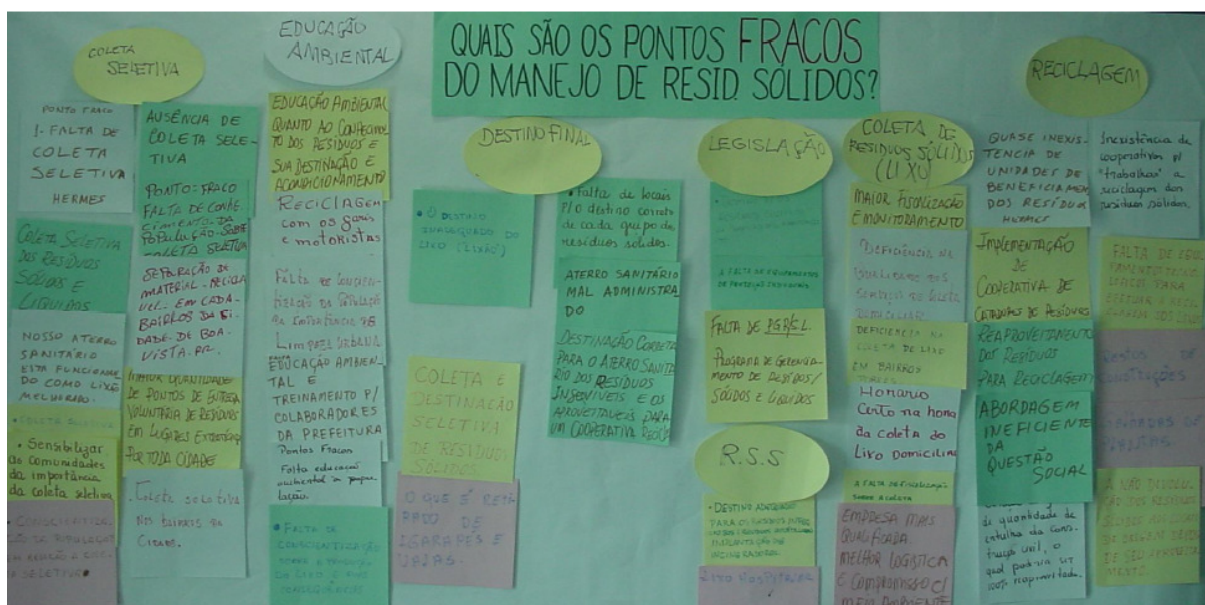 QUAIS SÃO OS PONTOS FRACOS
DO MANEJO DE RESID. SÓLIDOS?
COLETA
SELETIVA
PONTO FRACO
1- FALTA DE
COLETA
SELETIVA
HERMES
COLETA SELETIVA
DOS RESÍDUOS
SÓLIDOS E
LÍQUIDOS
NOSSO ATERRO
SANITÁRIO
ESTA FUNCIONAN
DO COMO LIXÃO
MELHORADO.
• COLETA SELETIVA
• Sensibilizar
as comunidades
da importância
da coleta seletiva
• CONSCIENTIZA
ÇÃO DA POPULAÇÃO
EM RELAÇÃO A COLE
SELETIVA
AUSÊNCIA DE
COLETA SELE-
TIVA
PONTO-FRACO
FALTA DE CONHE-
CIMENTO-DA
POPULAÇÃO-SOBRE
COLETA SELETIVA
SEPARAÇÃO DE
MATERIAL-RECICLA
VEL. EM CADA-
BAIRROS DA CI-
DADE-DE BOA-
VISTA-RR.
MAIOR QUANTIDADE
DE PONTOS DE ENTREGA
VOLUNTÁRIA DE RESÍDUOS
EM LUGARES
POR TODA CIDADE
. Coleta seletiva
Nos bairros da
Cidade.
EDUCAÇÃO
AMBIENTAL
EDUCAÇÃO AMBIENTAL
QUANTO AO CONHECIMEN
TO DOS RESÍDUOS E
SUA DESTINAÇÃO E
ACONDICIONAMENTO
RECICLAGEM
com os garis
e motoristas
Falta de conscien-
tização da população
da importância da
Limpeza Urbana
EDUCAÇÃO AMBIEN-
TAL E
TREINAMENTO P/
COLABORADORES
DA PREFEITURA
Pontos Fracos
Falta educação
ambiental da popu-
lação.
• FALTA DE
CONSCIENTIZAÇÃO
SOBRE A PRODUÇÃO
DO LIXO E SUAS
CONSEQUÊNCIAS
DESTINO FINAL
• O DESTINO
INADEQUADO DO
LIXO (LIXÃO)
COLETA E
DESTINAÇÃO
SELETIVA
DE RESÍDUOS
SÓLIDOS
O QUE É RETI
RADO DE
IGARAPÉS E
VALAS.
• Falta de locais
P/ o destino correto
de cada grupo de
resíduos sólidos.
ATERRO SANITÁRIO
MAL ADMINISTRA
DO
DESTINAÇÃO CORRETA
PARA O ATERRO SANITÁ
RIO DOS RESÍDUOS
INSERVÍVEIS E OS
APROVEITÁVEIS PARA
UM COOPERATIVA
LEGISLAÇÃO
A FALTA DE EQUIPAMENTOS
DE PROTEÇÃO INDIVIDUAL
FALTA DE PGRSL.
PROGRAMA DE GERENCIA-
MENTO DE RESÍDOS/
SÓLIDOS E LÍQUIDOS
R.S.S
• DESTINO ADEQUADO
PARA OS
IMPLANTAÇÃO DE
INCINERADORES.
LIXO HOSPITALAR
COLETA DE
RESÍDUOS SÓLIDOS
(LIXO)
MAIOR FISCALIZAÇÃO
E MONITORAMENTO
DEFICIÊNCIA NA
QUALIDADE DOS
SERVIÇO DE COLETA
DOMICILIAR
DEFICIÊNCIA NA
COLETA DE LIXO
EM BAIRROS
Horario
Certo na hora
da coleta do
Lixo Domiciliar
A FALTA DE FISCALIZAÇÃO
SOBRE A COLETA
EMPRESA MAIS
QUALIFICADA.
MELHOR LOGÍSTICA
E COMPROMISSO C/
MEIO AMBIENTE
RECICLAGEM
QUASE INEXIS-
TENCIA DE
UNIDADES DE
BENEFICIAMEN
DOS RESÍDUOS
HERMES
IMPLEMENTAÇÃO
DE
COOPERATIVA DE
CATADORES DE RESÍDUOS
REAPROVEITAMENTO
DOS RESÍDUOS
PARA RECICLAGEM
ABORDAGEM
INEFICIENTE
DA
QUESTÃO
SOCIAL
di quantidade de
entulho da cons-
trução civil, o
qual poderia ser
100% reaproveitado.
Inexistência de
cooperativas p/
"trabalhar" a
reciclagem dos
resíduos sólidos.
FALTA DE EQUI
PARA
EFETUAR A RECI
CLAGEM DOS LIXOS
RESTOS DE
CONSTRUÇÕES
PODADAS DE
PLANTAS.
A NÃO
ÇÃO DOS RESÍDUOS
SÓLIDOS
DE ORIGEM
DE SEU APROVEITA
MENTO.